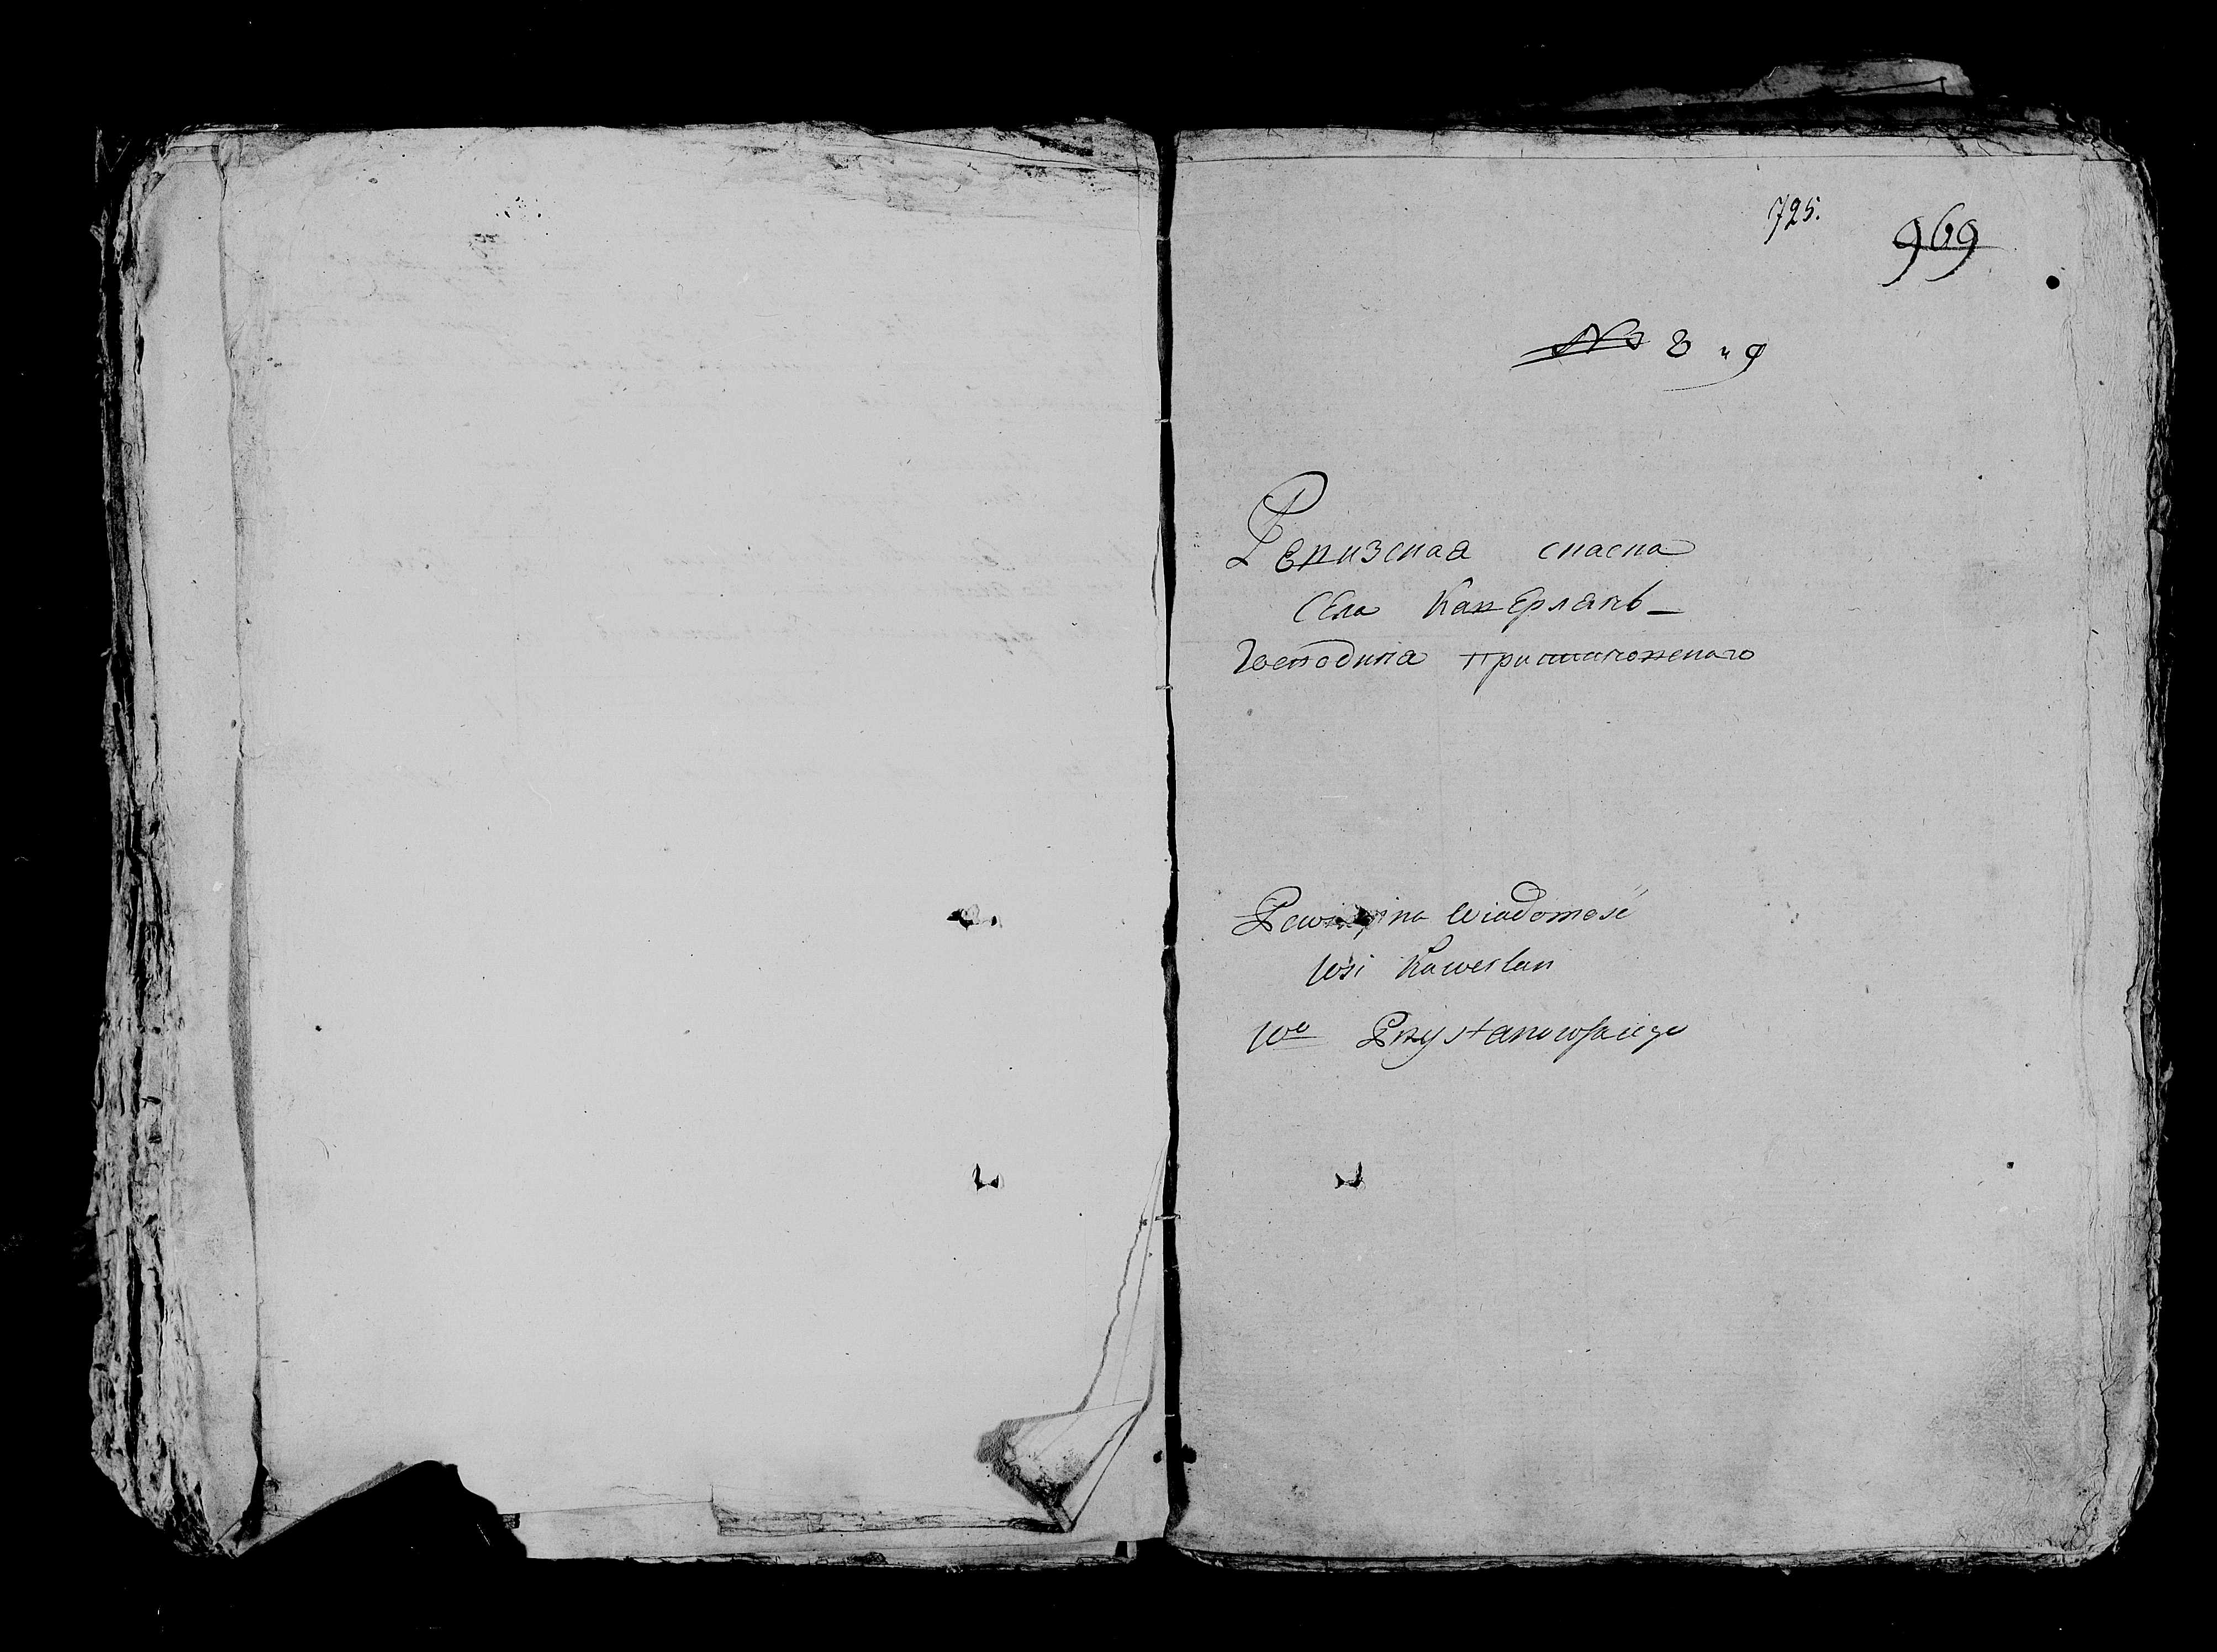 725.
969
№ 8 и 9
Ревизская скаска
Села Каверлянъ
Господина Пристановскаго
Rewizyina Wiadomość
Wsi Kawerlan
Wo Przystanowskiego